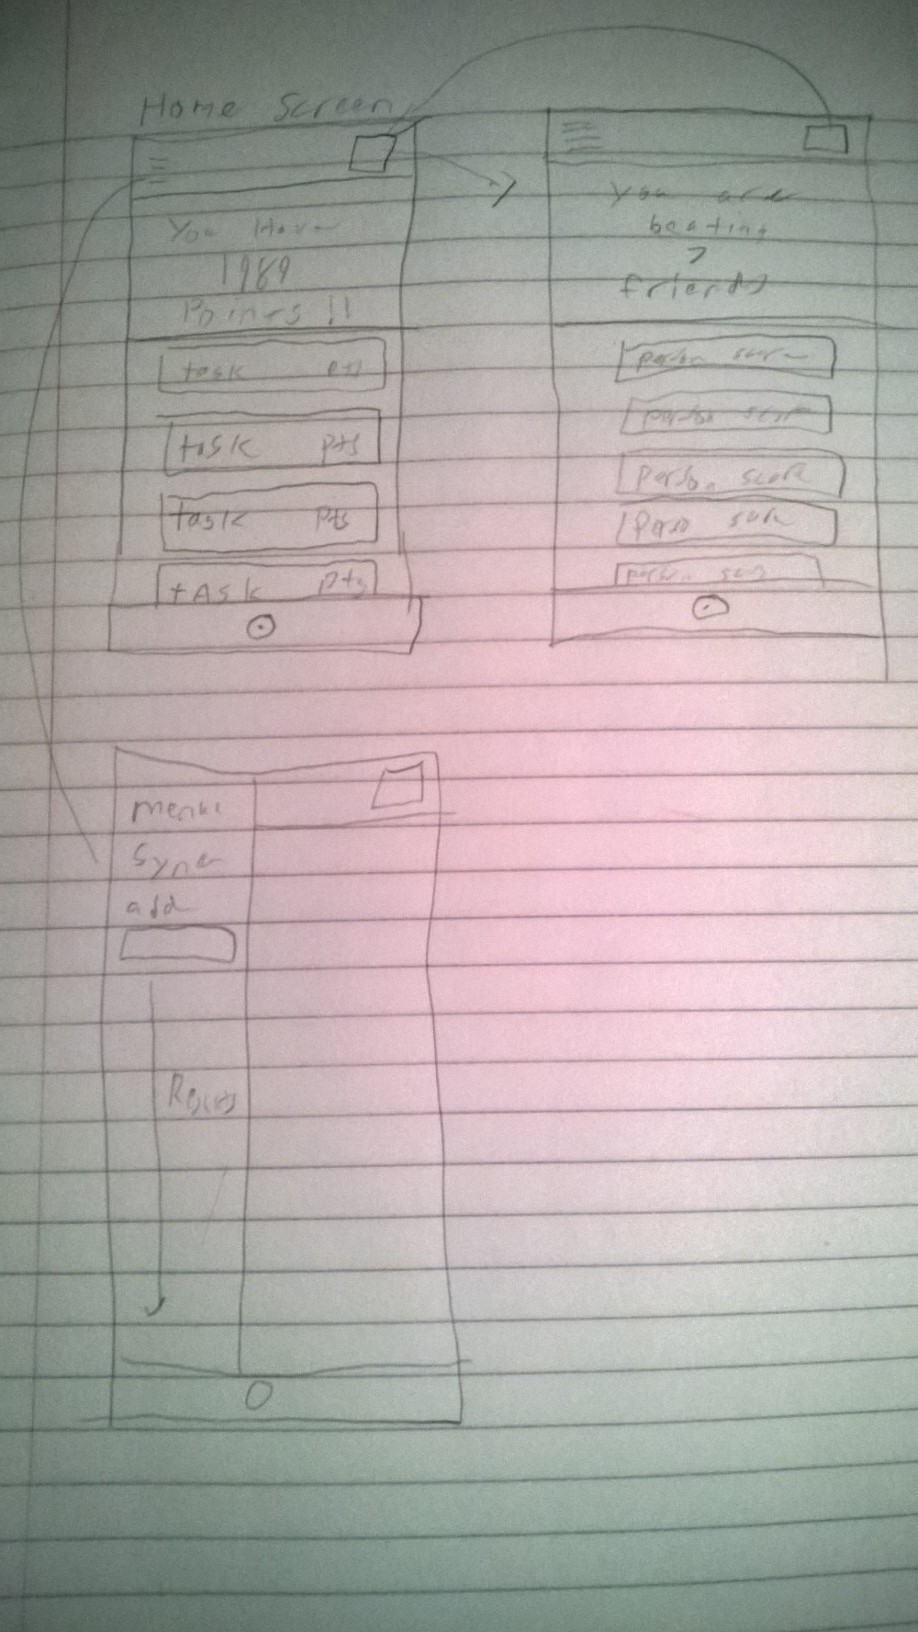 Home Screen
You Have
1989
Points !!
task pts
task pts
task pts
tAsk pts
you are
beating
7
friends
person score
person score
person score
person
menu
Sync
add